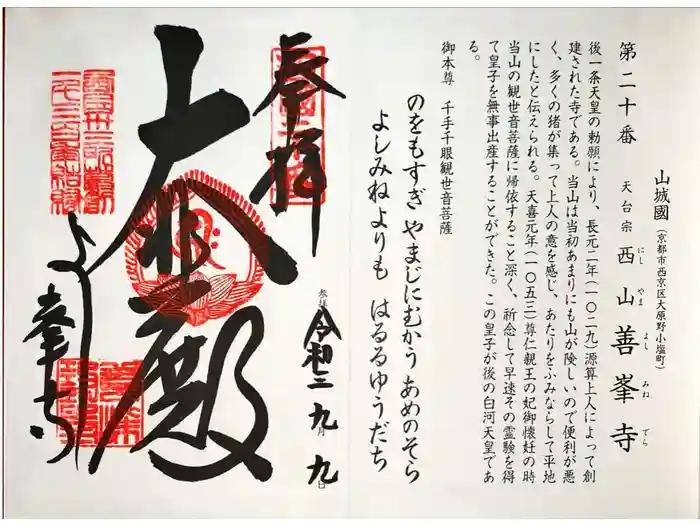 山城國（京都市西京区大原野小塩町）
第二十番　天台宗　西山善峯寺
にしやまよしみねでら
後一条天皇の勅願により、長元二年（一〇二九）源算上人によって創
建された寺である。当山は当初あまりにも山が険しいので便利が悪
く、多くの猪が集って上人の意を感じ、あたりをふみならして平地
にしたと伝えられる。天喜元年（一〇五三）尊仁親王の妃御懐妊の時
当山の観世音菩薩に帰依すること深く、祈念して早速その霊験を得
て皇子を無事出産することができた。この皇子が後の白河天皇であ
る。
御本尊　千手千眼観世音菩薩
のをもすぎ　やまじにむかう　あめのそら
よしみねよりも　はるるゆうだち
奉拝
参拝　令和三　九月　九日
大悲殿
よし峯寺